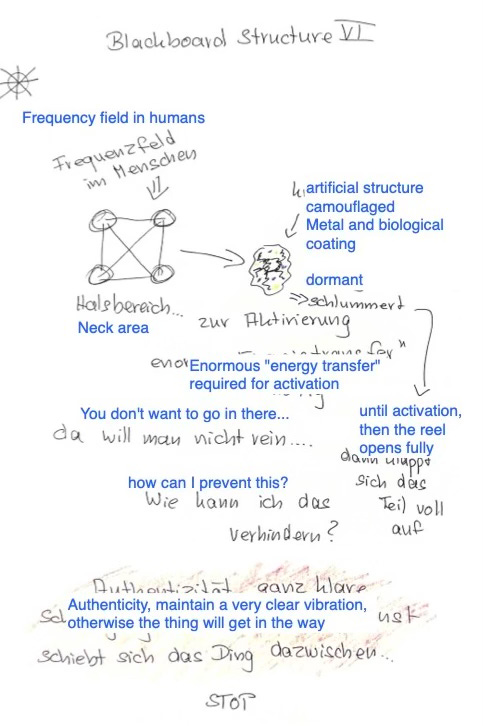 Blackboard Structure VI
Frequency field in humans
Frequenzfeld
im Menschen
artificial structure
camouflaged
Metal and biological
coating
dormant
schlummert
Halsbereich...
Neck area
zur Aktivierung
Enormous "energy transfer"
required for activation
You don't want to go in there...
da will man nicht rein....
until activation,
then the reel
opens fully
dann klappt
sich das
Teil voll
auf
how can I prevent this?
Wie kann ich das
verhindern?
Authentizität, ganz klare
Authenticity, maintain a very clear vibration,
otherwise the thing will get in the way
schiebt sich das Ding dazwischen...
STOP